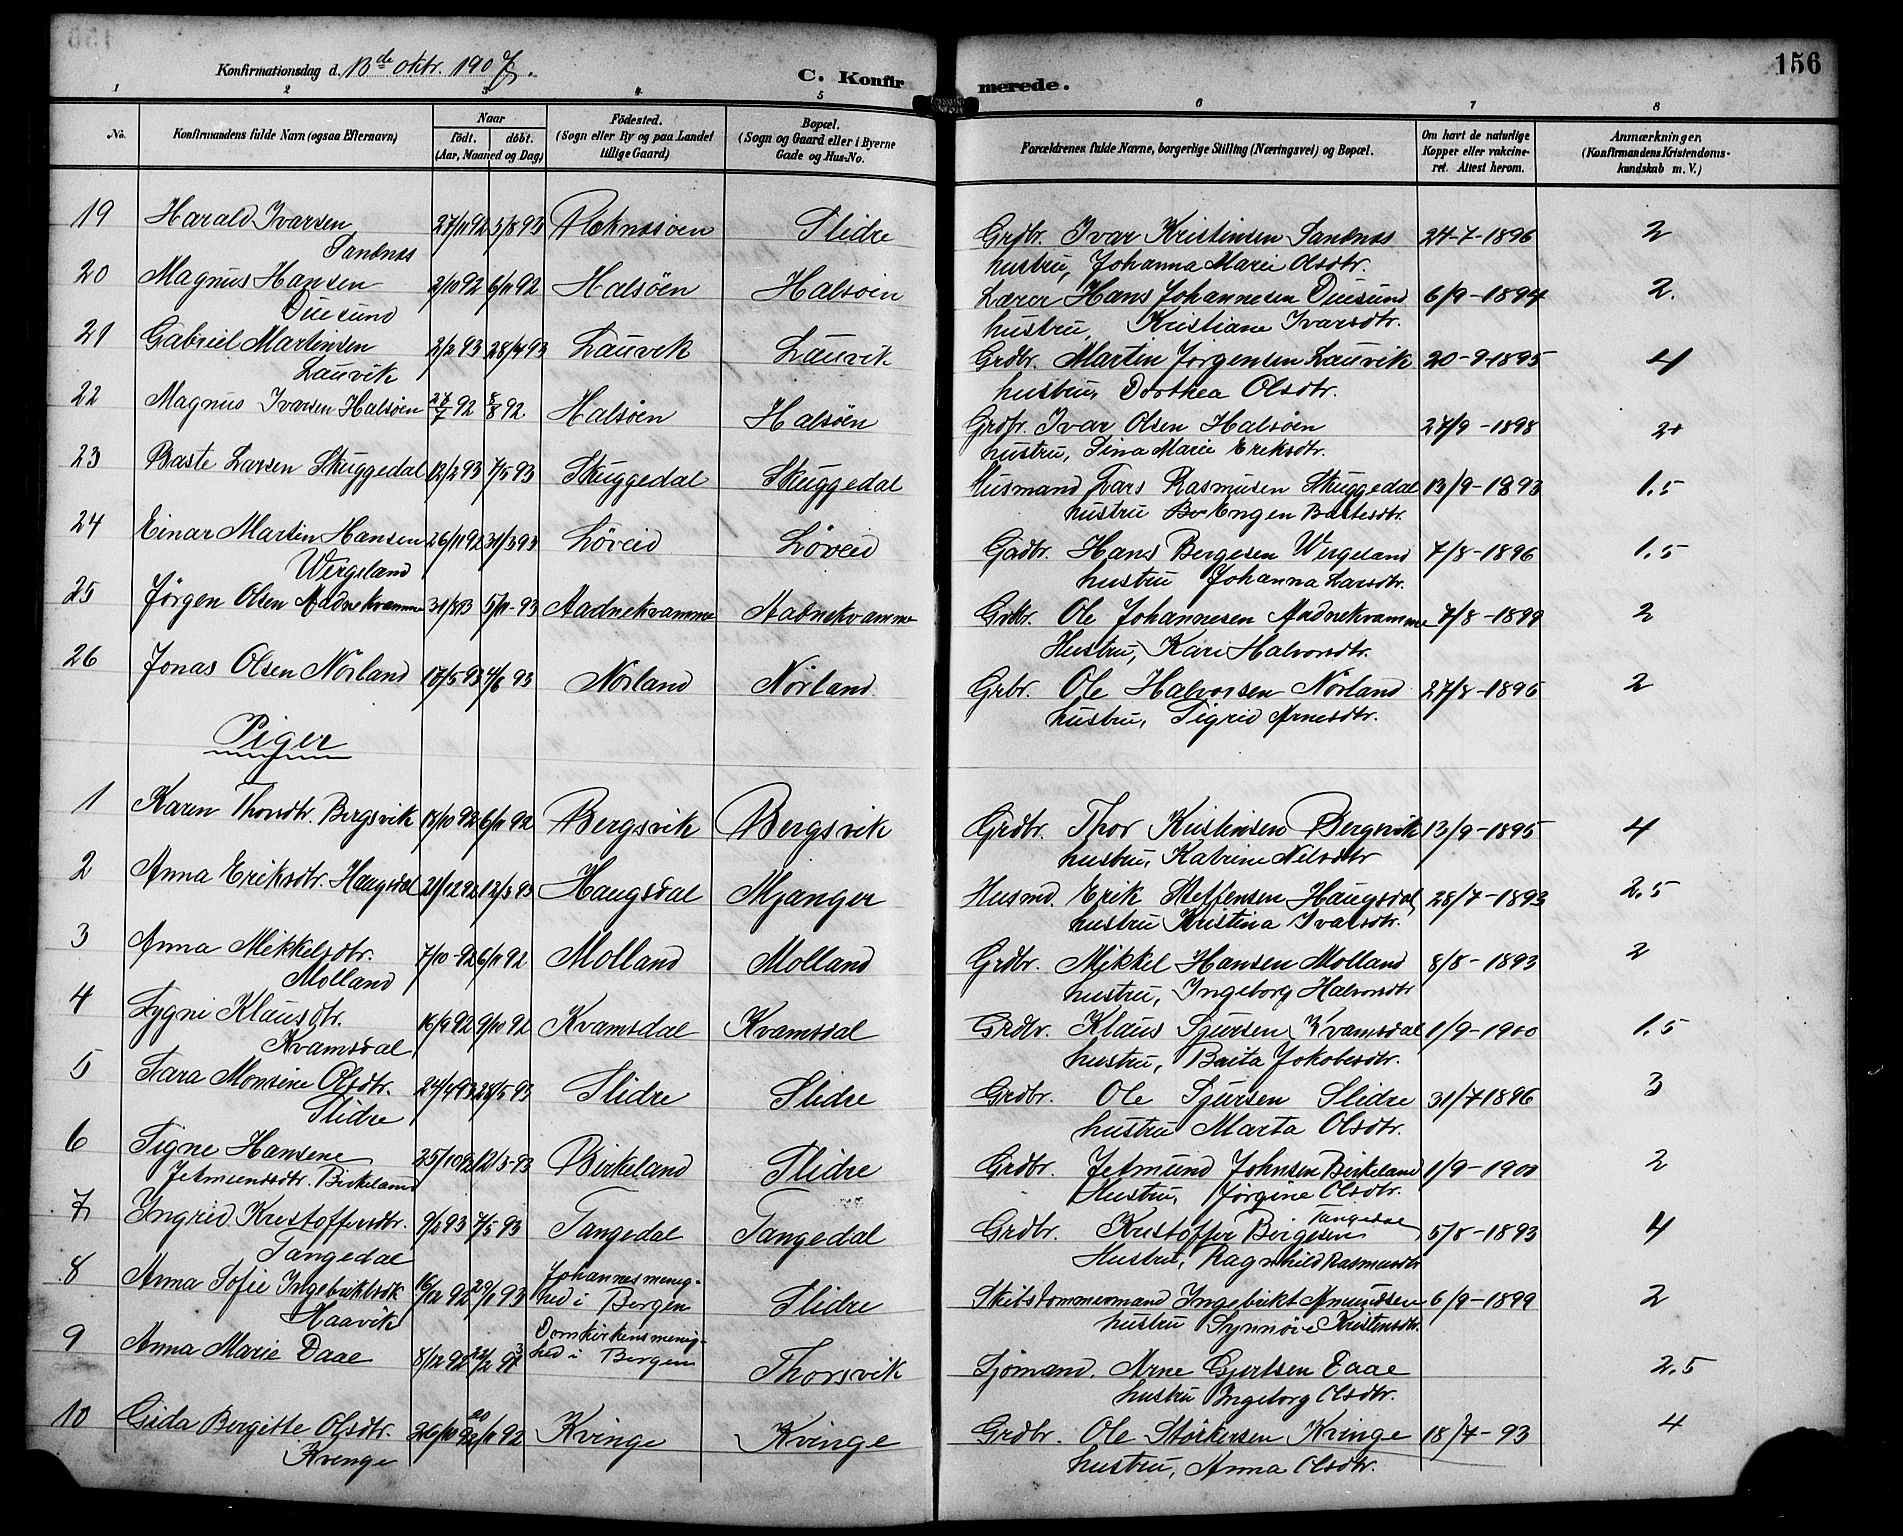 156
Konfirmationsdag d. 13de oktr. 1907.
C. Konfirmerede.
1 2 3 4 5 6 7 8
No. Konfirmandens fulde Navn (ogsaa Efternavn) Naar født. døbt. (Aar, Maaned og Dag) Fødested. (Sogn eller By og paa Landet tillige Gaard) Bopæl. (Sogn og Gaard eller i Byerne Gade og Hus-No. Forældrenes fulde Navne, borgerlige Stilling (Næringsvei) og Bopæl. Om havt de naturlige Kopper eller vakcineret. Attest herom. Anmærkninger, (Konfirmandens Kristendomskundskab m. V.)
19 Harald Ivarsen 27/11 92 5/8 93 Slidre Grdbr. Ivar Kristensen Sandnes 24-7-1896 2
Sandnes hustru, Johanna Marie Olsdtr.
20 Magnus Hansen 2/10 92 6/11 92 Halsöen Halsöen Lærer Hans Johannesen Duesund 6/9-1894 2.
Duesund hustru, Kristiane Ivarsdtr.
21 Gabriel Martinsen 2/2 93 28/4 93 Lauvik Lauvik Grdbr. Martin Jørgensen Lauvik 20-9 1895 4
Lauvik hustru, Dorthea Olsdtr.
22 Magnus Ivarsen Halsöen 27/7 92 8/8 92 Halsöen Halsöen Grdbr. Ivar Olsen Halsöen 27/9-1898 2
hustru, Sina Marie Eriksdtr.
23 Baste Larsen Skuggedal 12/2 93 7/5 93 Skuggedal Skuggedal Husmand Lars Rasmusen Skuggedal 13/9-1893 1.5
hustru Engen Bastesdtr.
24 Einar Martin Hansen 26/11 92 31/3 93 Løveid Løveid Gadbr. Hans Bergesen Wergeland 7/8-1896 1.5
Wergeland hustru Johanna Larsdtr.
25 Jørgen Olsen Aadnekvamme 31/8 93 5/11-93 Aadnekvamme Aadnekvamme Grdbr. Ole Johannesen Aadnekvamme 7/8-1899 2
Hustru, Kari Halvorsdtr.
26 Jonas Olsen Nörland 18/5 93 4/6 93 Nörland Nörland Grbr. Ole Halvorsen Nörland 27/8-1895 2
hustru, Sigrid Arnesdtr.
Piger
1 Karen Thorsdtr. Bergsvik 18/10 92 6/11 92 Bergsvik Bergsvik Grdbr. Thor Kristensen Bergsvik 13/9-1895 4
hustru, Katrine Nelsdtr
2 Anna Eriksdtr. Haugsdal 21/12 92 12/3 93 Haugsdal Mjanger Husmd. Erik Steffensen Haugsdal, 28/7-1893 2.5
hustru Kristina Ivarsdtr.
3 Anna Mikkelsdtr. 7/10-92 6/11 92 Molland Molland Grdbr. Mikkel Hansen Molland 8/8-1893 2
Molland hustru, Ingeborg Halvorsdtr
4 Sygni Klausdtr. 16/9 92 9/10 92 Kvamsdal Kvamsdal Grdbr. Klaus Sjursen Kvamsdal 1/9-1900 1.5
Kvamsdal hustru, Brita Jokobsdtr.
5 Sara Monsine Olsdtr. 24/4 93 28/5 93 Slidre Slidre Grdbr. Ole Sjursen Slidre 31/7 1896 3
Slidre hustru Marta Olsdtr.
6 Signe Hansene 25/10 92 12/3-93 Birkeland Slidre Grdbr. Jetmund Johnsen Birkeland 1/9-1900 2
Jetmundsdtr. Birkeland Hustru, Jørgine Olsdtr.
7 Ingrid Kristoffersdtr. 9/2 93 7/5 93 Tangedal Tangedal Grdbr. Kristoffer Birgesen Tangedal 5/8-1893 4
Tangedal Hustru, Ragnhild Rasmusdtr
8 Anna Sofie Ingebriktsdtr 16/12 92 29/1 93 Johannesmenighed i Bergen Slidre Skibstømmermand Ingebrikt Amundsen 6/9-1899 2
Haavik hustru Synnöve Kristensdtr.
9 Anna Marie Daae 8/12 92 Domkirkensmenighed i Bergen Thorsvik Sjömand. Arne Gjertsen Daae 2.5
hustru Ingeborg Olsdtr.
10 Gida Bergitte Olsdtr. 26/10 92 20/11 92 Kvinge Kvinge Grdbr. Ole Störkersen Kvinge 18/7-93 4
Kvinge hustru, Anna Olsdtr.